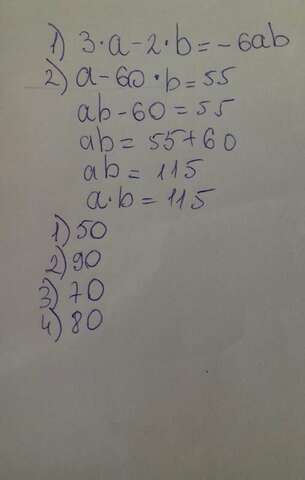 1) 3·a-2·b=-6ab
2) a-60·b=55
ab-60=55
ab=55+60
ab=115
a·b=115
1) 50
2) 90
3) 70
4) 80